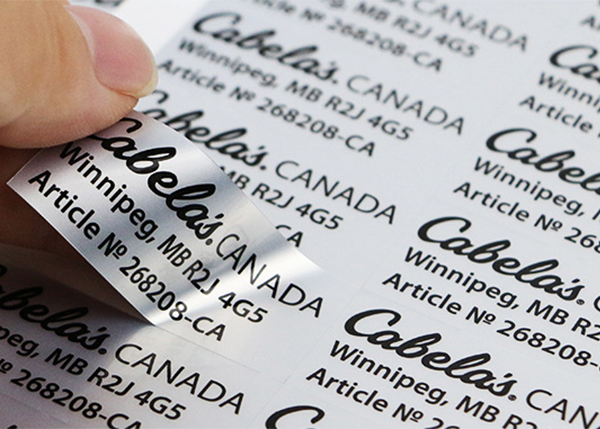 CANADA
MB R2J 4G5
268208-CA
Cabela's. CANADA
Winnipeg, MB R2J 4G5
Article № 268208-CA
Cabela's. CANADA
MB R2J 4G5
CA
Cabela's. CANADA
Winnipeg, MB R2J 4G5
Article № 268208-CA
Cabela's. CANADA
MB R2J 4G5
№ 268208-CA
Winnip
Article
Cabela's
Winnipeg,
Article № 268
Cabela's.
Winnipeg, MB R2
Article № 268208-
Cabela's. CAN
Winnipeg, MB R2J
Article №